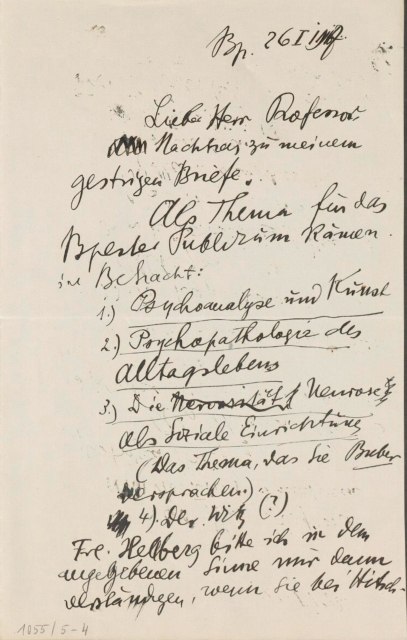 Bp. 26 I
Lieber Herr Professor
Nachtrag zu meinem
gestrigen Briefe.
Als Thema für das
Bpester Publikum kämen
in Betracht:
1.) Psychoanalyse und Kunst
2.) Psychopathologie des
Alltagslebens
3.) Die Nervosität Neurose
als Soziale Einrichtung
(Das Thema, das Sie
versprachen.)
4). Der Witz (?)
Frl. Hellberg bitte ich in dem
angegebenen Sinne mir dann
verständigen, wenn Sie bei Hitsch-
1055/5-4